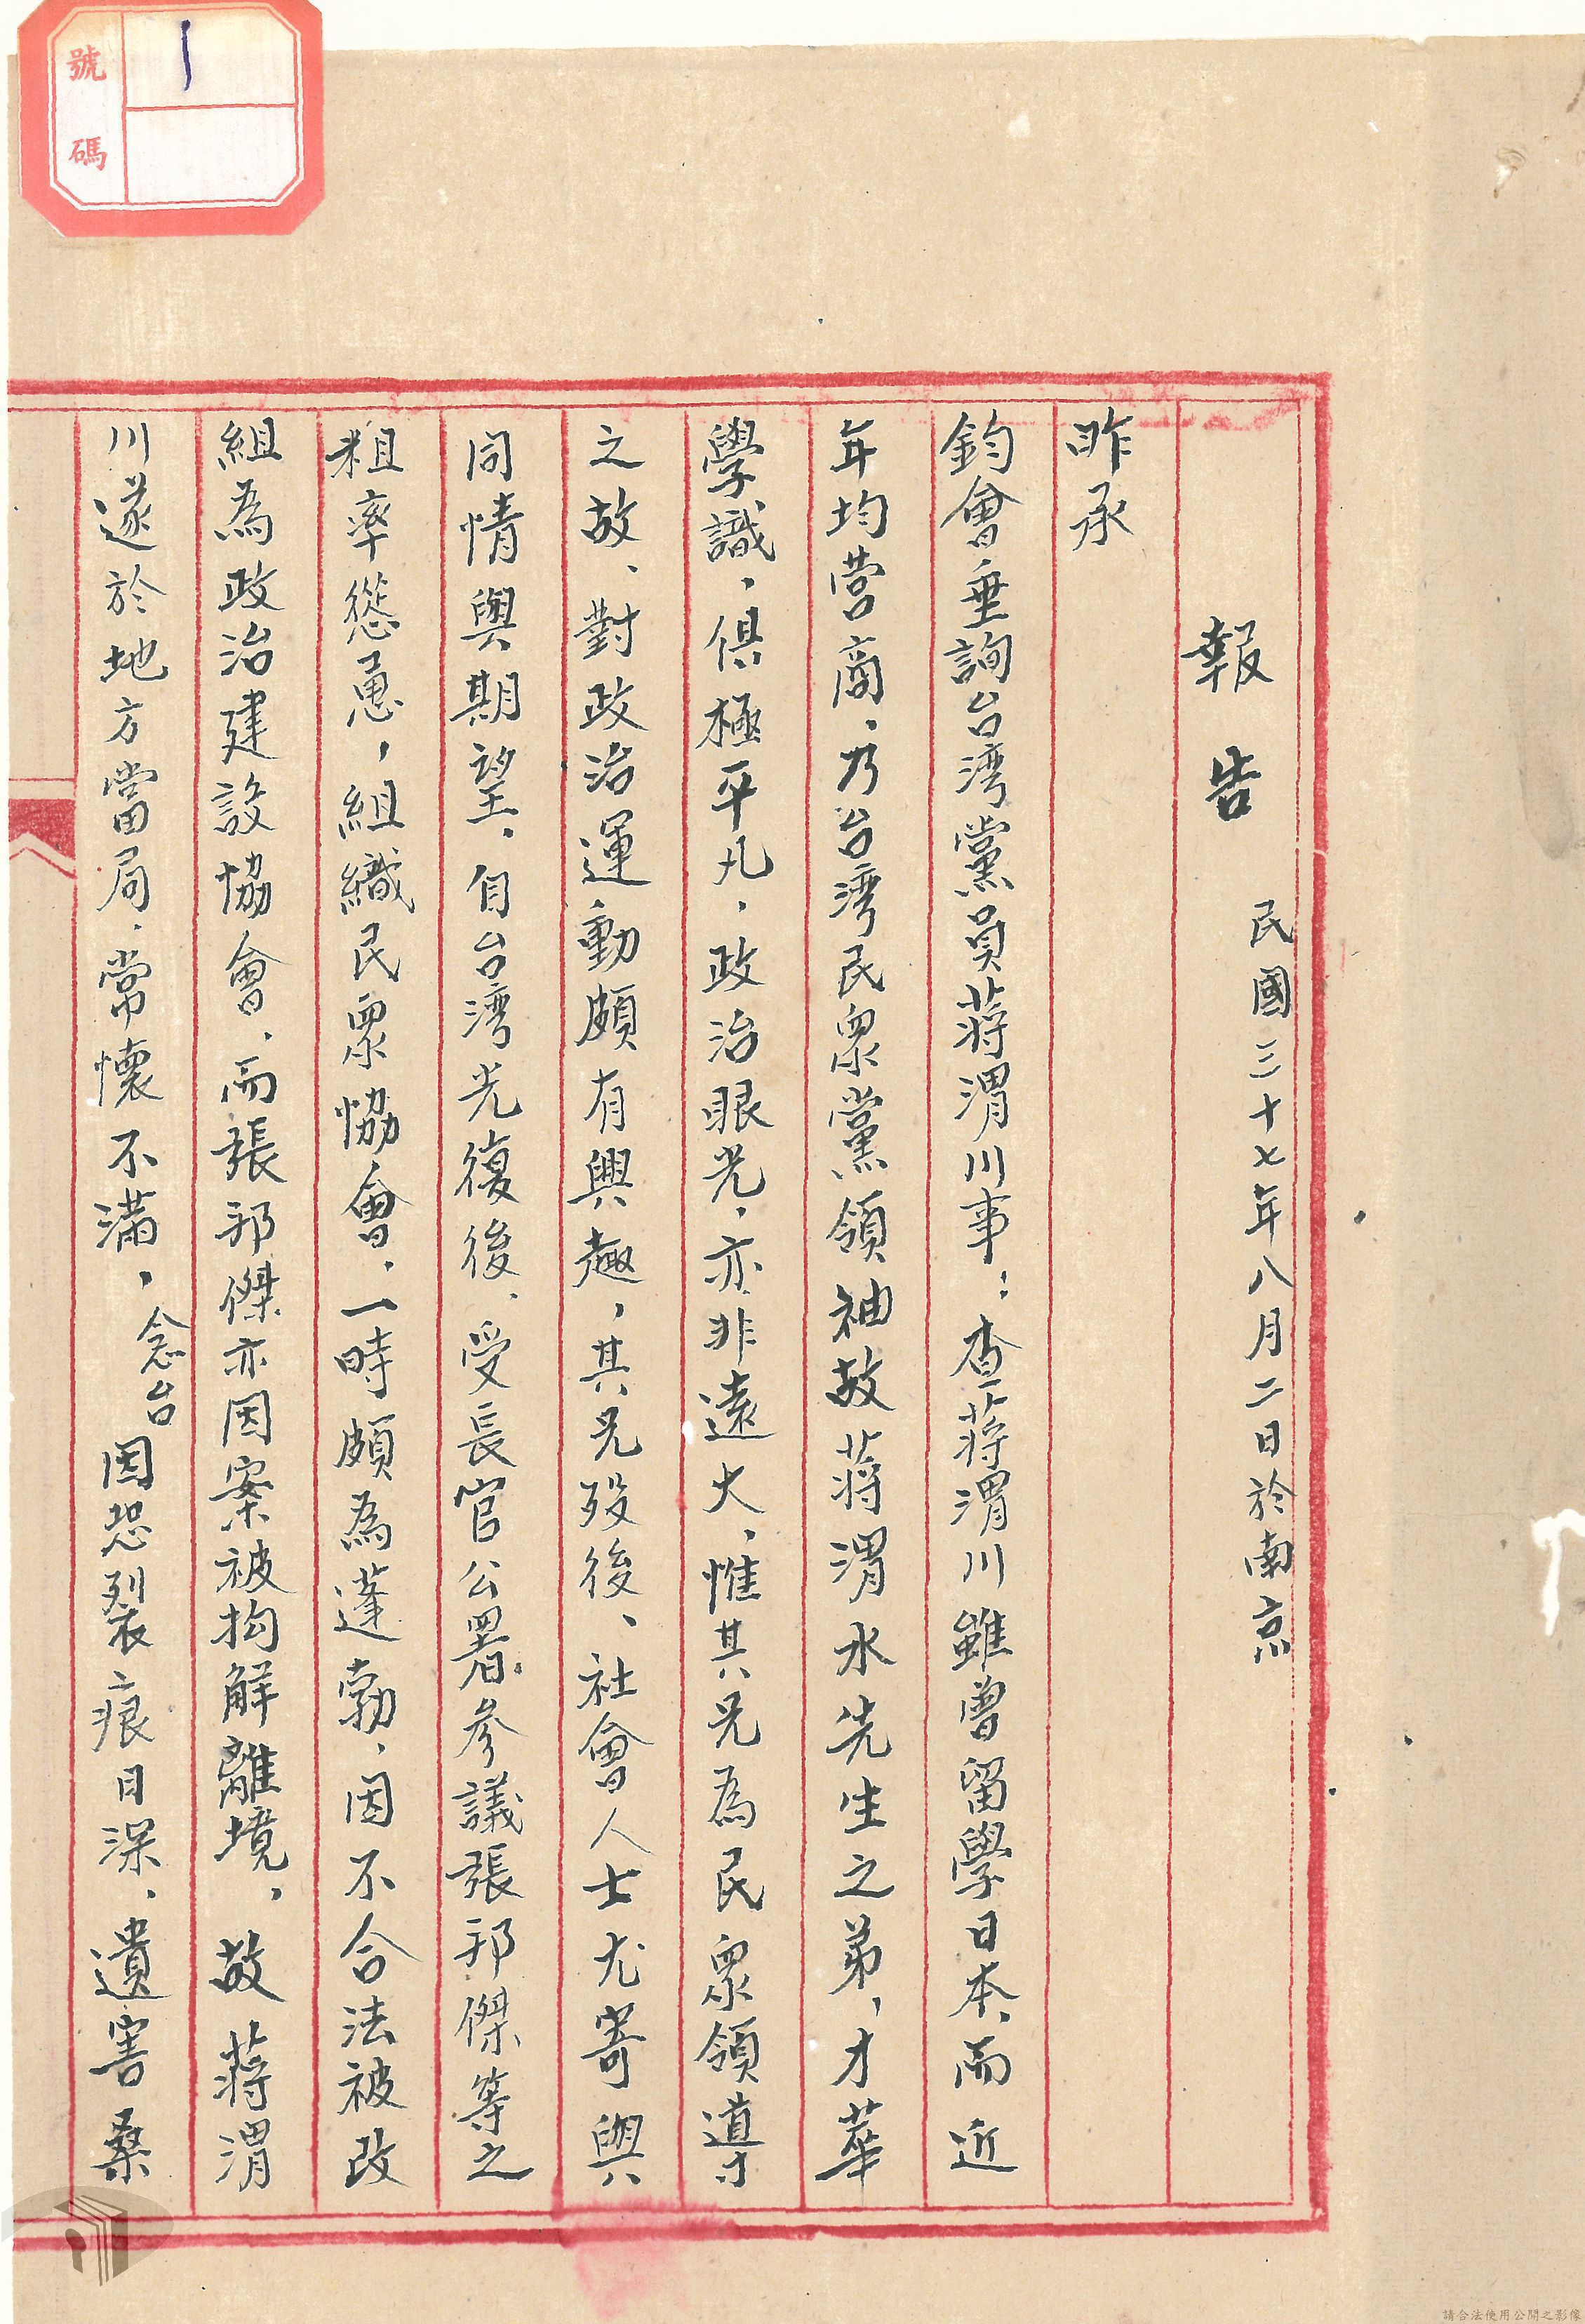 報告 民國三十七年八月二日於南京
昨承
鈞會垂詢台湾黨員蔣渭川事：查蔣渭川雖曾留學日本、而近
年均營商、乃台湾民眾黨領袖故蔣渭水先生之弟，才華
學識，俱極平凡，政治眼光，亦非遠大，惟其兄為民眾領導
之故、對政治運動頗有興趣，其兄歿後、社會人士尤寄與
同情與期望，自台湾光復後、受長官公署參議張邦傑等之
粗率慫恿，組織民眾協會，一時頗為蓬勃，因不合法被改
組為政治建設協會，而張邦傑亦因案被拘解離境，故蔣渭
川遂於地方當局，常懷不滿，念台因恐裂痕日深，遺害桑
號碼
1
請合法使用公開之影像